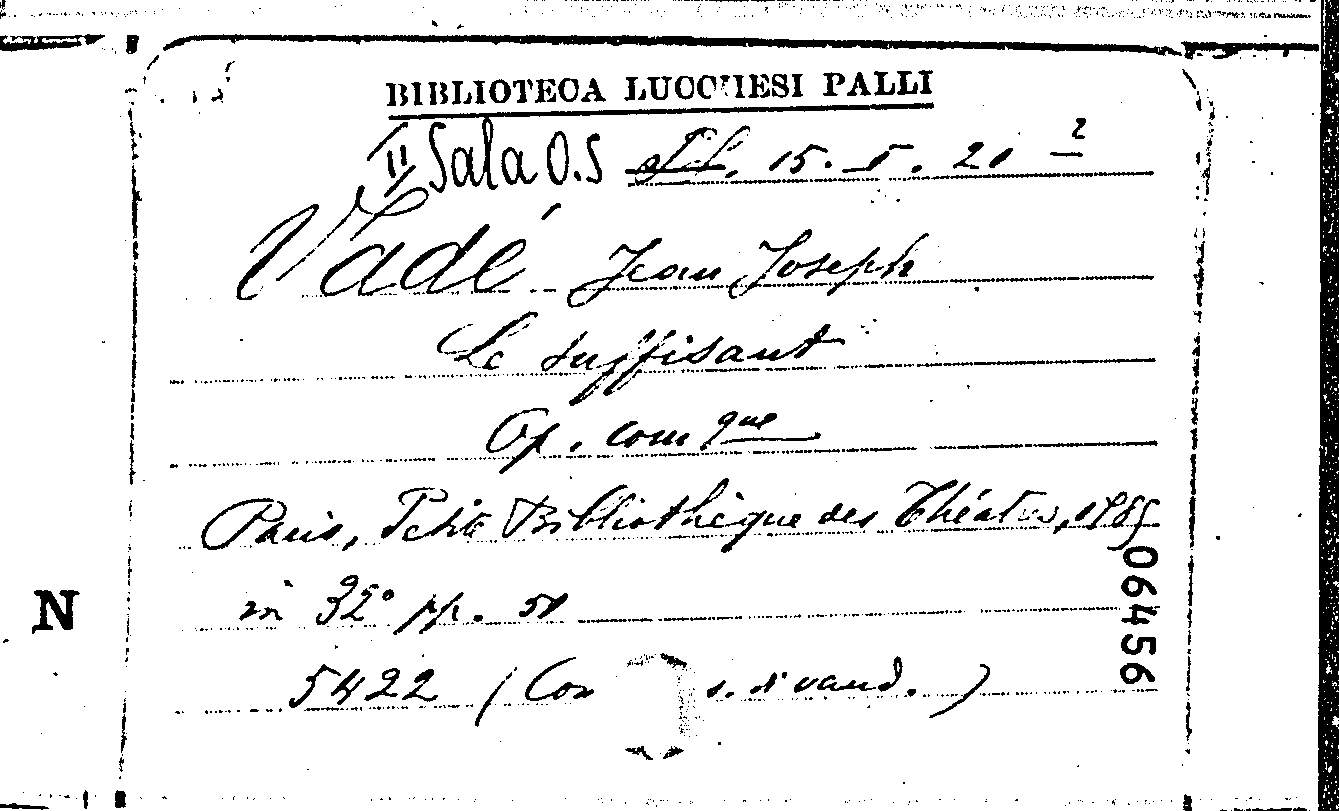 BIBLIOTECA LUCCHESI PALLI
II Sala O.S 15. I. 20 2
Vadé Jean Joseph
Le suffisant
Op. comque
Paris, Petite Bibliothèque des Théatres,
06456
N
in 32° pp.
5422 (Con s. d'vaud. )